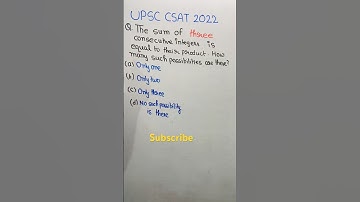 UPSC CSAT 2022
Q. The sum of three
consecutive integers is
equal to their product. How
many such possibilities are there?
(a) Only one
(b) Only two
(c) Only three
(d) No such possibility
is there
Subscribe